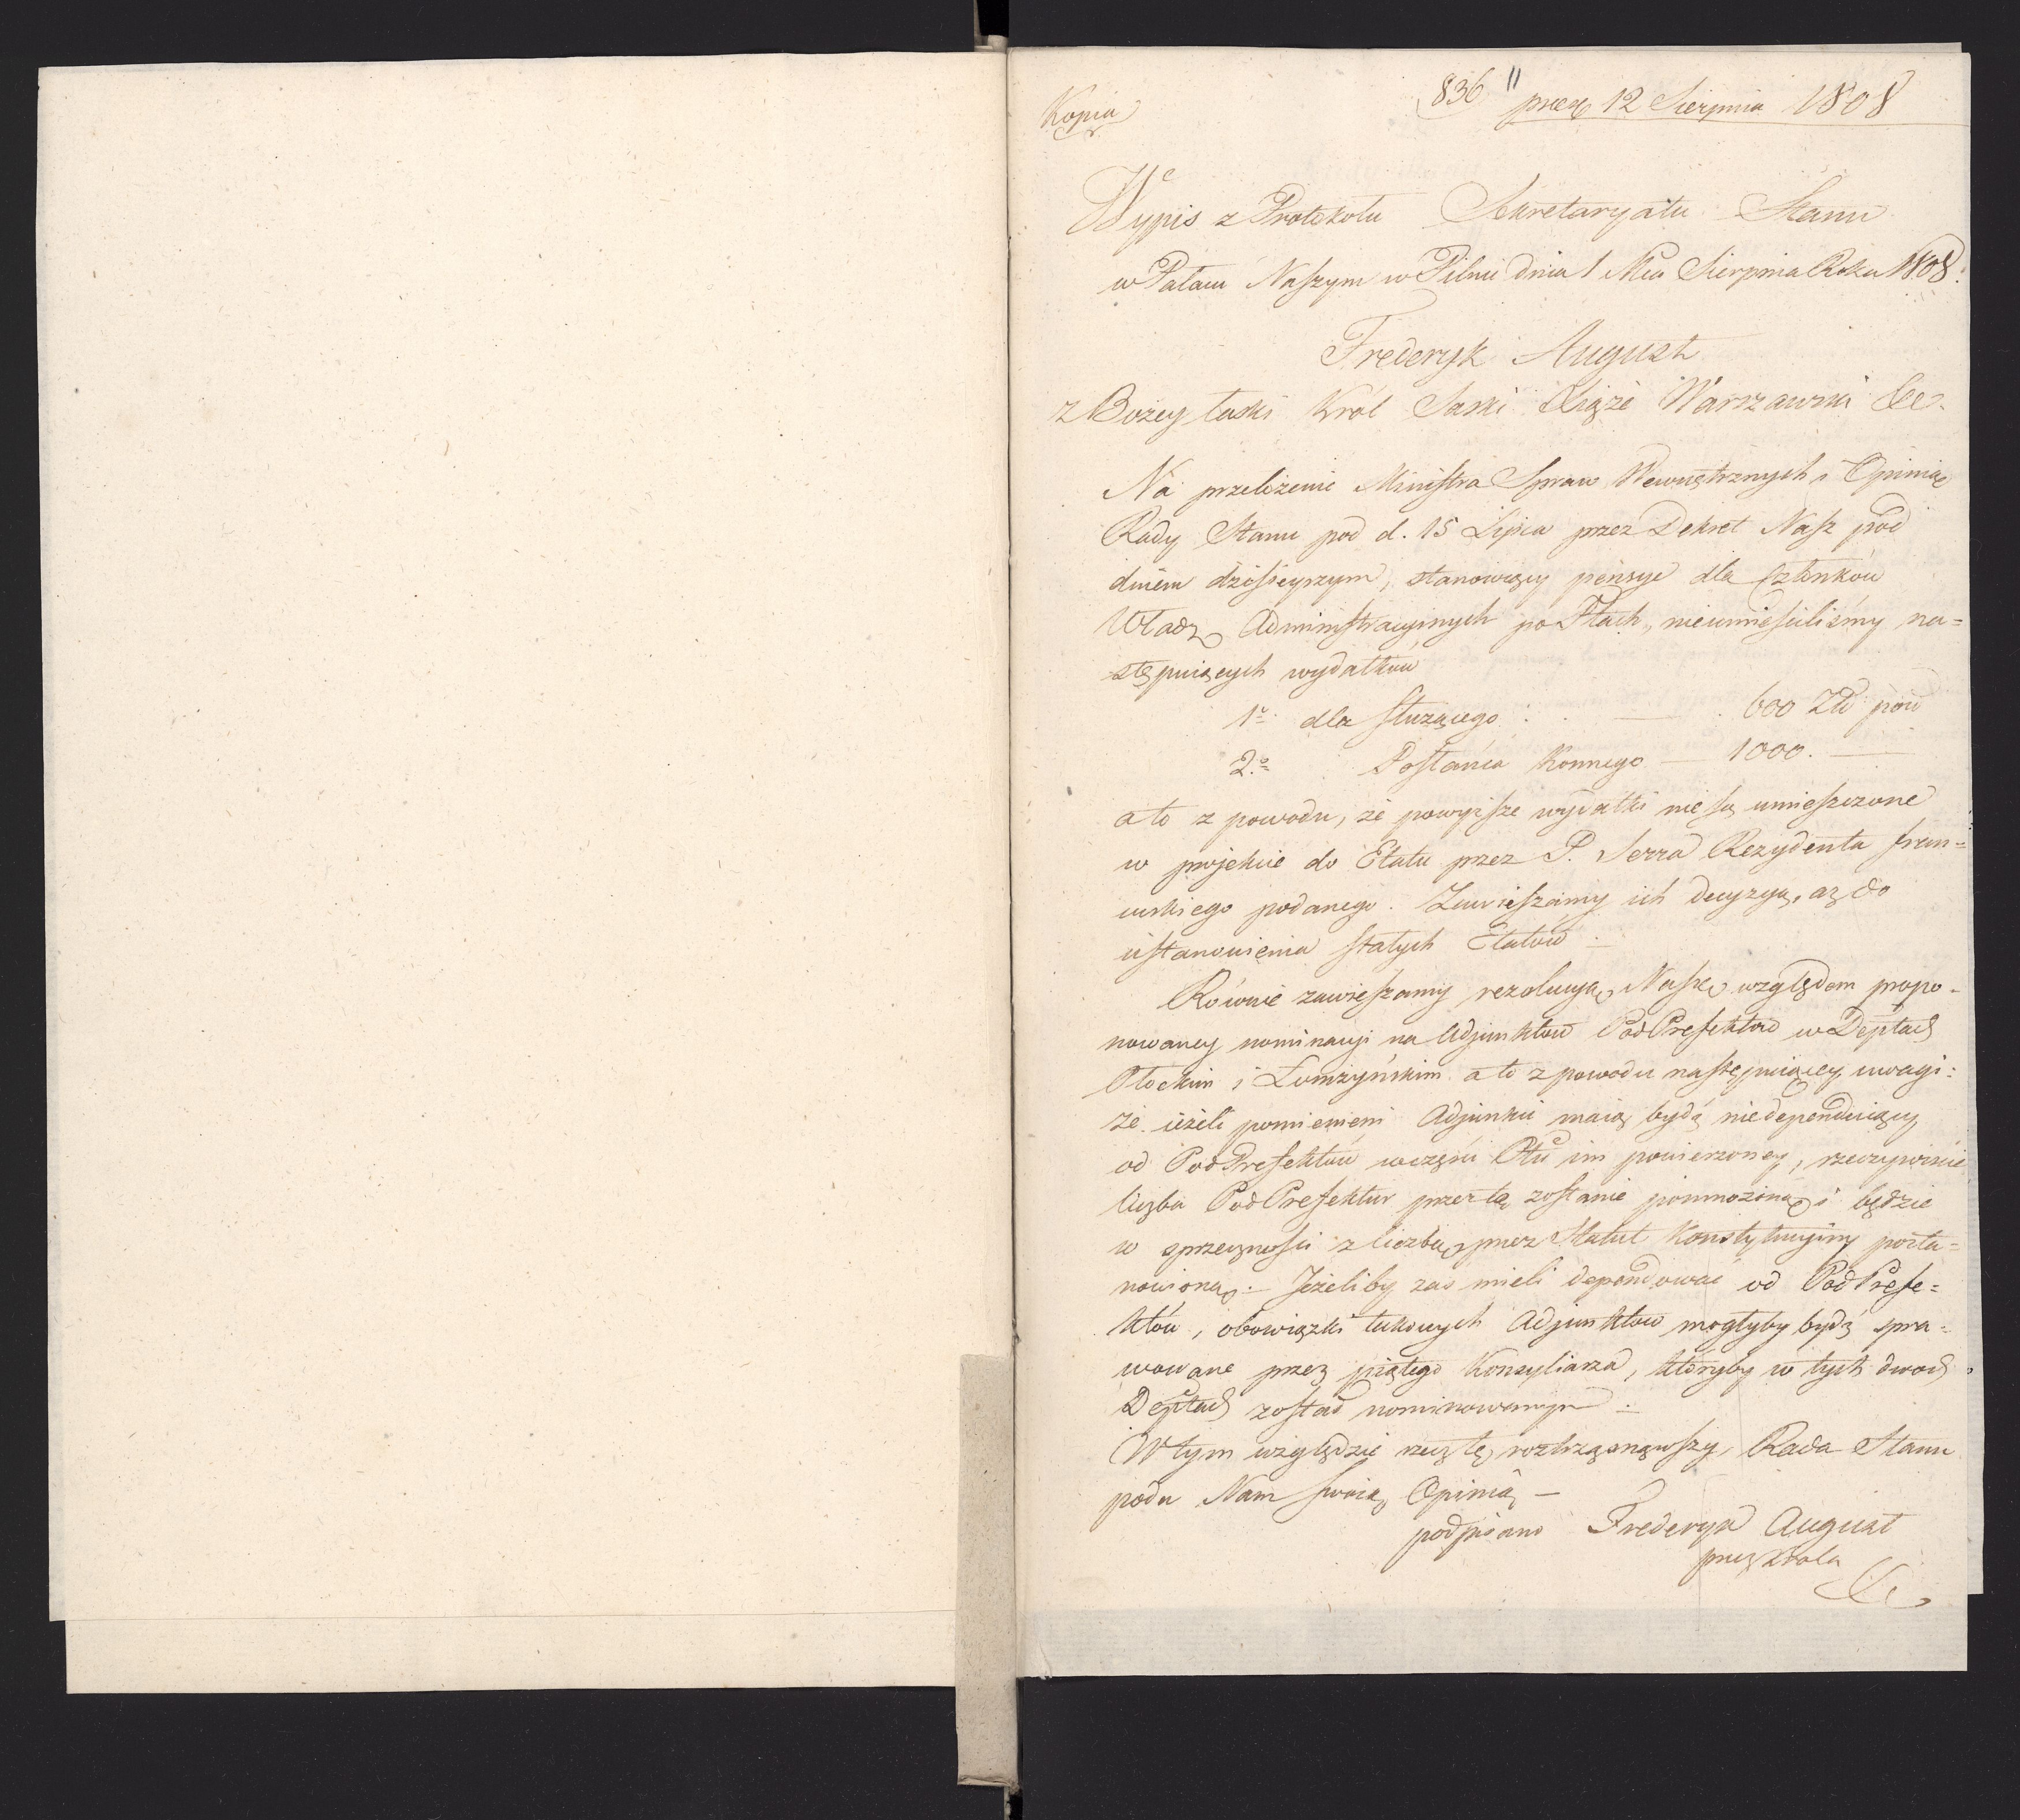 836 11
Kopia
præs 12 Sierpnia 1808
Wypis z Protokołu Sekretaryatu Stanu
w Pałacu Naszym w Pilni dnia 1 Mca Sierpnia Roku 1808.
Frederyk August
z Bożey łaski Król Saski Xiąże Warszawski &c.
Na przełożenie Ministra Spraw Wewnętrznych i Opinią
Rady Stanu pod d. 15 Lipca przez Dekret Nasz pod
dniem dzisieyszym, stanowiący pensye dla Członków
Władz Administracyinych po Ptach, nieumieściliśmy na=
stępuiących wydatków
1º dla służącego : . — . 600 Złł pow
2.º Posłańca Konnego — 1000. —
a to z powodu, że powyższe wydatki nie są umieszczone
w projekcie do Etatu przez P. Serra Rezydenta fran=
cuskiego podanego. Zawieszamy ich decyzyą, aż do
ustanowienia stałych Etatów. —
Rownie zawieszamy rezolucyą Naszę względem propo=
nowaney nominacyi na Adjunktów PodPrefektów w Deptach
Płockim i Łomżyńskim. a to z powodu następuiącey uwagi:
że ieżeli pomienieni Adjunkci maią bydź niedependuiący
od PodPrefektów w części Ptu im powierzoney, rzeczywiście
liczba PodPrefektur przez to zostanie pomnożoną i będzie
w sprzeczności z liczbą przez Statut Konstytucyiny posta=
nowioną. — Jeżeliby zaś mieli dependować od PodPrefe=
któw, obowiązki takowych Adjunktów mogłyby bydź spra=
wowane przez piątego Konsyliarza, któryby w tych dwóch
Deptach został nominowanym. —
W tym względzie rzecz tę roztrząsnąwszy, Rada Stanu
poda Nam swoią Opinią —
podpisano Frederyk August
przez Króla
&c